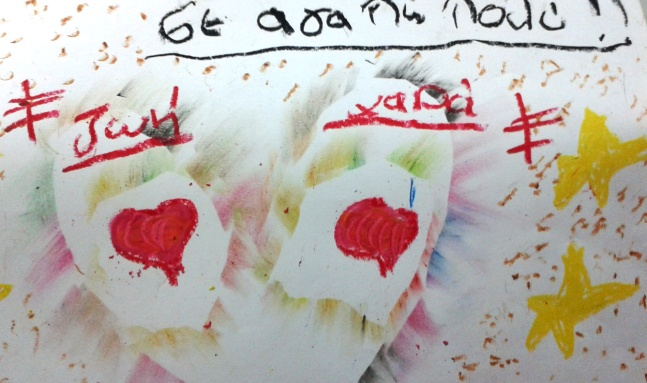 σε αγαπώ πολύ!!
Ζωή χαρά